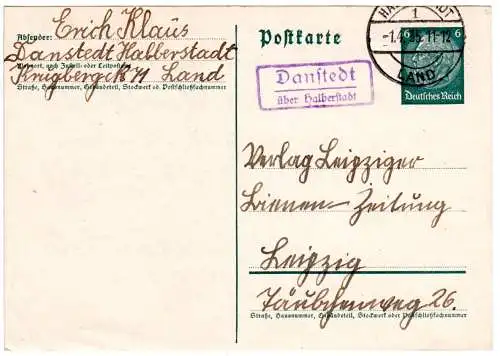 Absender: Erich Klaus
Danstedt Halberstadt
Wohnort, auch Zustell- oder Leitpostamt
Krugbergstr 71 Land
Straße, Hausnummer, Gebäudeteil, Stockwerk od. Postschließfachnummer
Postkarte
1
-1.4.35.11-12
LAND
6
6
Deutsches Reich
Danstedt
über Halberstadt
Verlag Leipziger
Bienen-Zeitung
Leipzig
Täubchenweg 26.
Straße, Hausnummer, Gebäudeteil, Stockwerk oder Postschließfachnummer